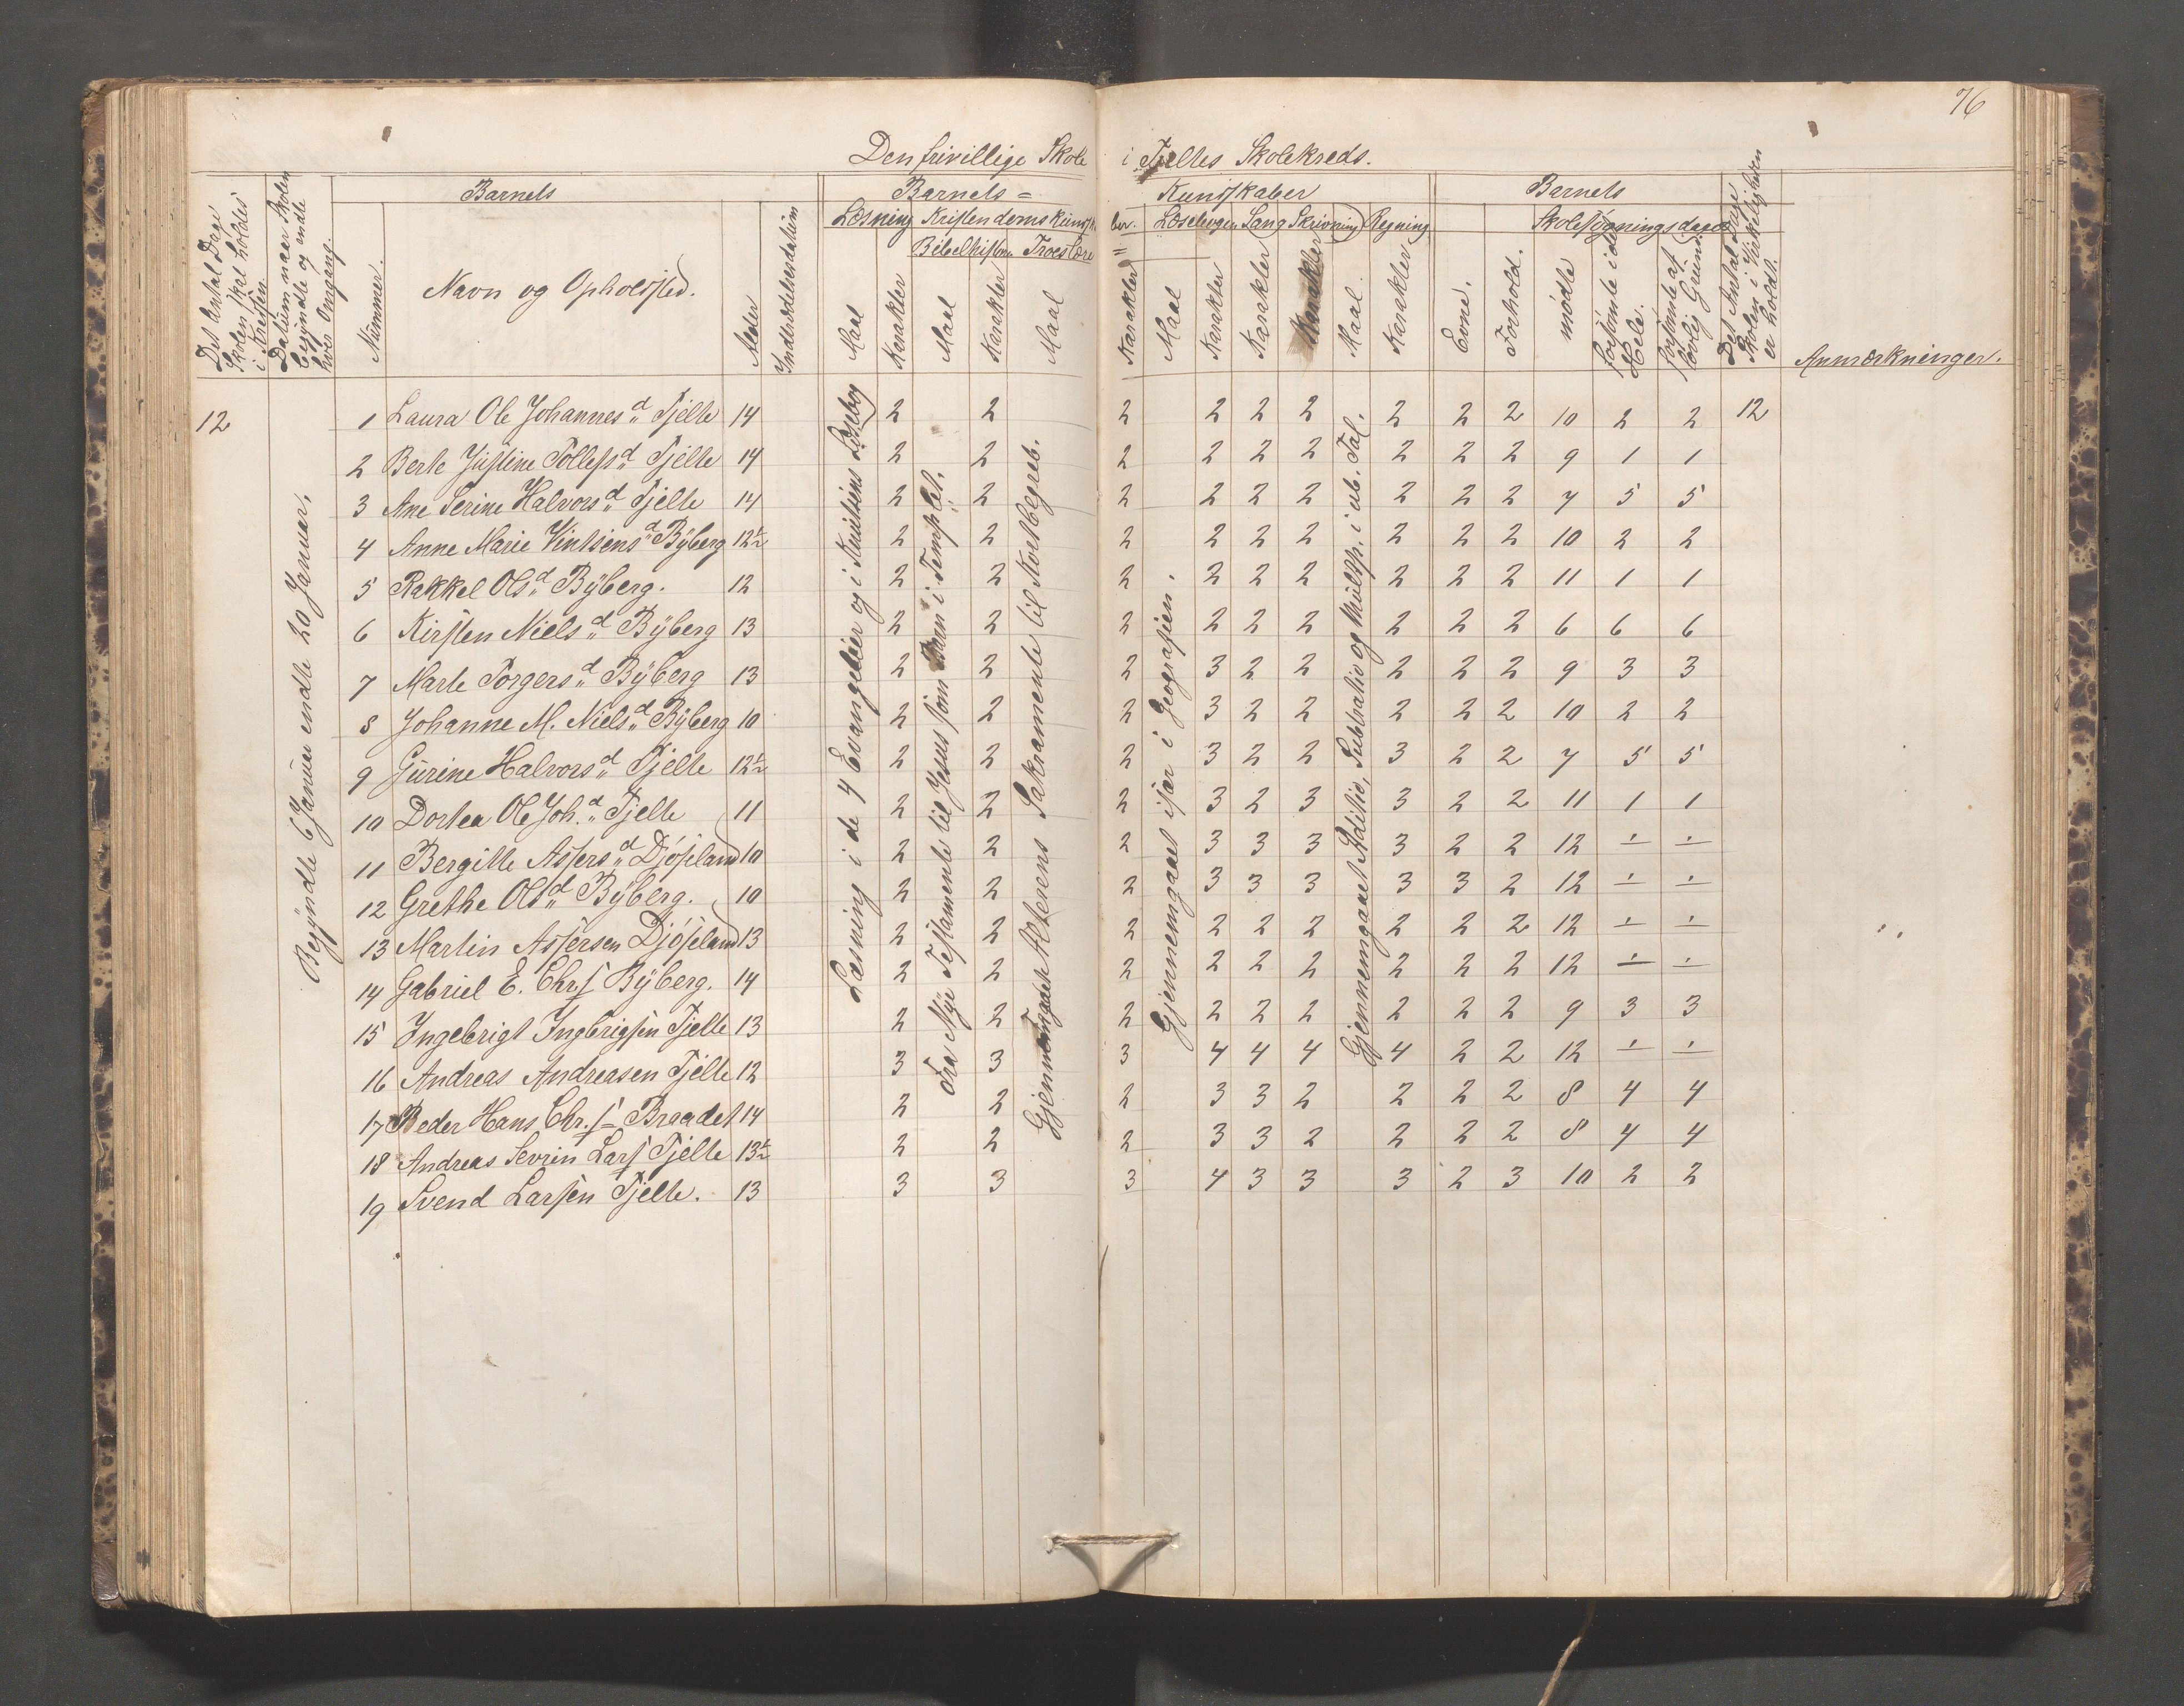 76
Den frivillige Skole i Tjeltes Skolekreds.
Det Antal Dage Skolen skal holdes i Kredsen.
Datum naar Skolen begyndte og endte hver Omgang.
Barnets
Nummer.
Navn og Opholdssted.
Alder
Indtrædelsesdatum
Barnets = Kundskaber
Læsning Kristendomskundskaber. Læsebogen Sang Skrivning Regning
Bibelhistorie Troeslære =
Maal Karakter Maal Karakter Maal Karakter Maal Karakter Karakter Karakter Maal Karakter
Barnets
Skolesøgningsdage
Evne. Forhold. mødte forsømte i det Hele. forsømte af lovlig Grund.
Det Antal Dage Skolen i Virkeligheden er holdt.
Anmærkninger.
Begyndte 6 Januar endte 20 Januar.
Læsning i de 4 Evangelier og i Knutsens Læsebog
Fra Nye Testamente til Jesus som Barn i Templet.
Gjennemgaaet Alterens Sakramente til Kortbegreb.
Gjennemgaaet især i Geografien.
Gjennemgaaet Aditio, Subtratio og Multip. i ub. Tal.
12 1 Laura Ole Johannesd. Tjelte 14 2 2 2 2 2 2 2 2 2 10 2 2 12
2 Berte Justine Tollefsd. Tjelte 14 2 2 2 2 2 2 2 2 2 9 1 1
3 Ane Serine Halvorsd. Tjelte 14 2 2 2 2 2 2 2 2 2 7 5 5
4 Anne Marie Vintsensd. Byberg 12½ 2 2 2 2 2 2 2 2 2 10 2 2
5 Rakkel Olsd. Byberg. 12 2 2 2 2 2 2 2 2 2 11 1 1
6 Kirsten Nielsd. Byberg 13 2 2 2 2 2 2 2 2 2 6 6 6
7 Marte Torgersd. Byberg 13 2 2 2 3 2 2 2 2 2 9 3 3
8 Johanne M. Nielsd. Byberg 10 2 2 2 3 2 2 2 2 2 10 2 2
9 Gurine Halvorsd. Tjelte 12½ 2 2 2 3 2 2 3 2 2 7 5 5
10 Dortea Ole Joh.d. Tjelte 11 2 2 2 3 2 3 3 2 2 11 1 1
11 Bergitte Assersd. Djøseland 10 2 2 2 3 3 3 3 2 2 12 ÷ ÷
12 Grethe Olsd. Byberg. 10 2 2 2 3 3 3 3 3 2 12 ÷ ÷
13 Martin Assersen Djøseland 13 2 2 2 2 2 2 2 2 2 12 ÷ ÷
14 Gabriel E. Chr.s Byberg. 14 2 2 2 2 2 2 2 2 2 12 ÷ ÷
15 Ingebrigt Ingbrigsen Tjelte 13 2 2 2 2 2 2 2 2 2 9 3 3
16 Andreas Andreasen Tjelte 12 3 3 3 4 4 4 4 2 2 12 ÷ ÷
17 Peder Hans Chr.s Braadet 14 2 2 2 3 3 2 2 2 2 8 4 4
18 Andreas Sevrin Lars Tjelte 13½ 2 2 2 3 3 2 2 2 2 8 4 4
19 Svend Larsen Tjelte. 13 3 3 3 4 3 3 3 2 3 10 2 2